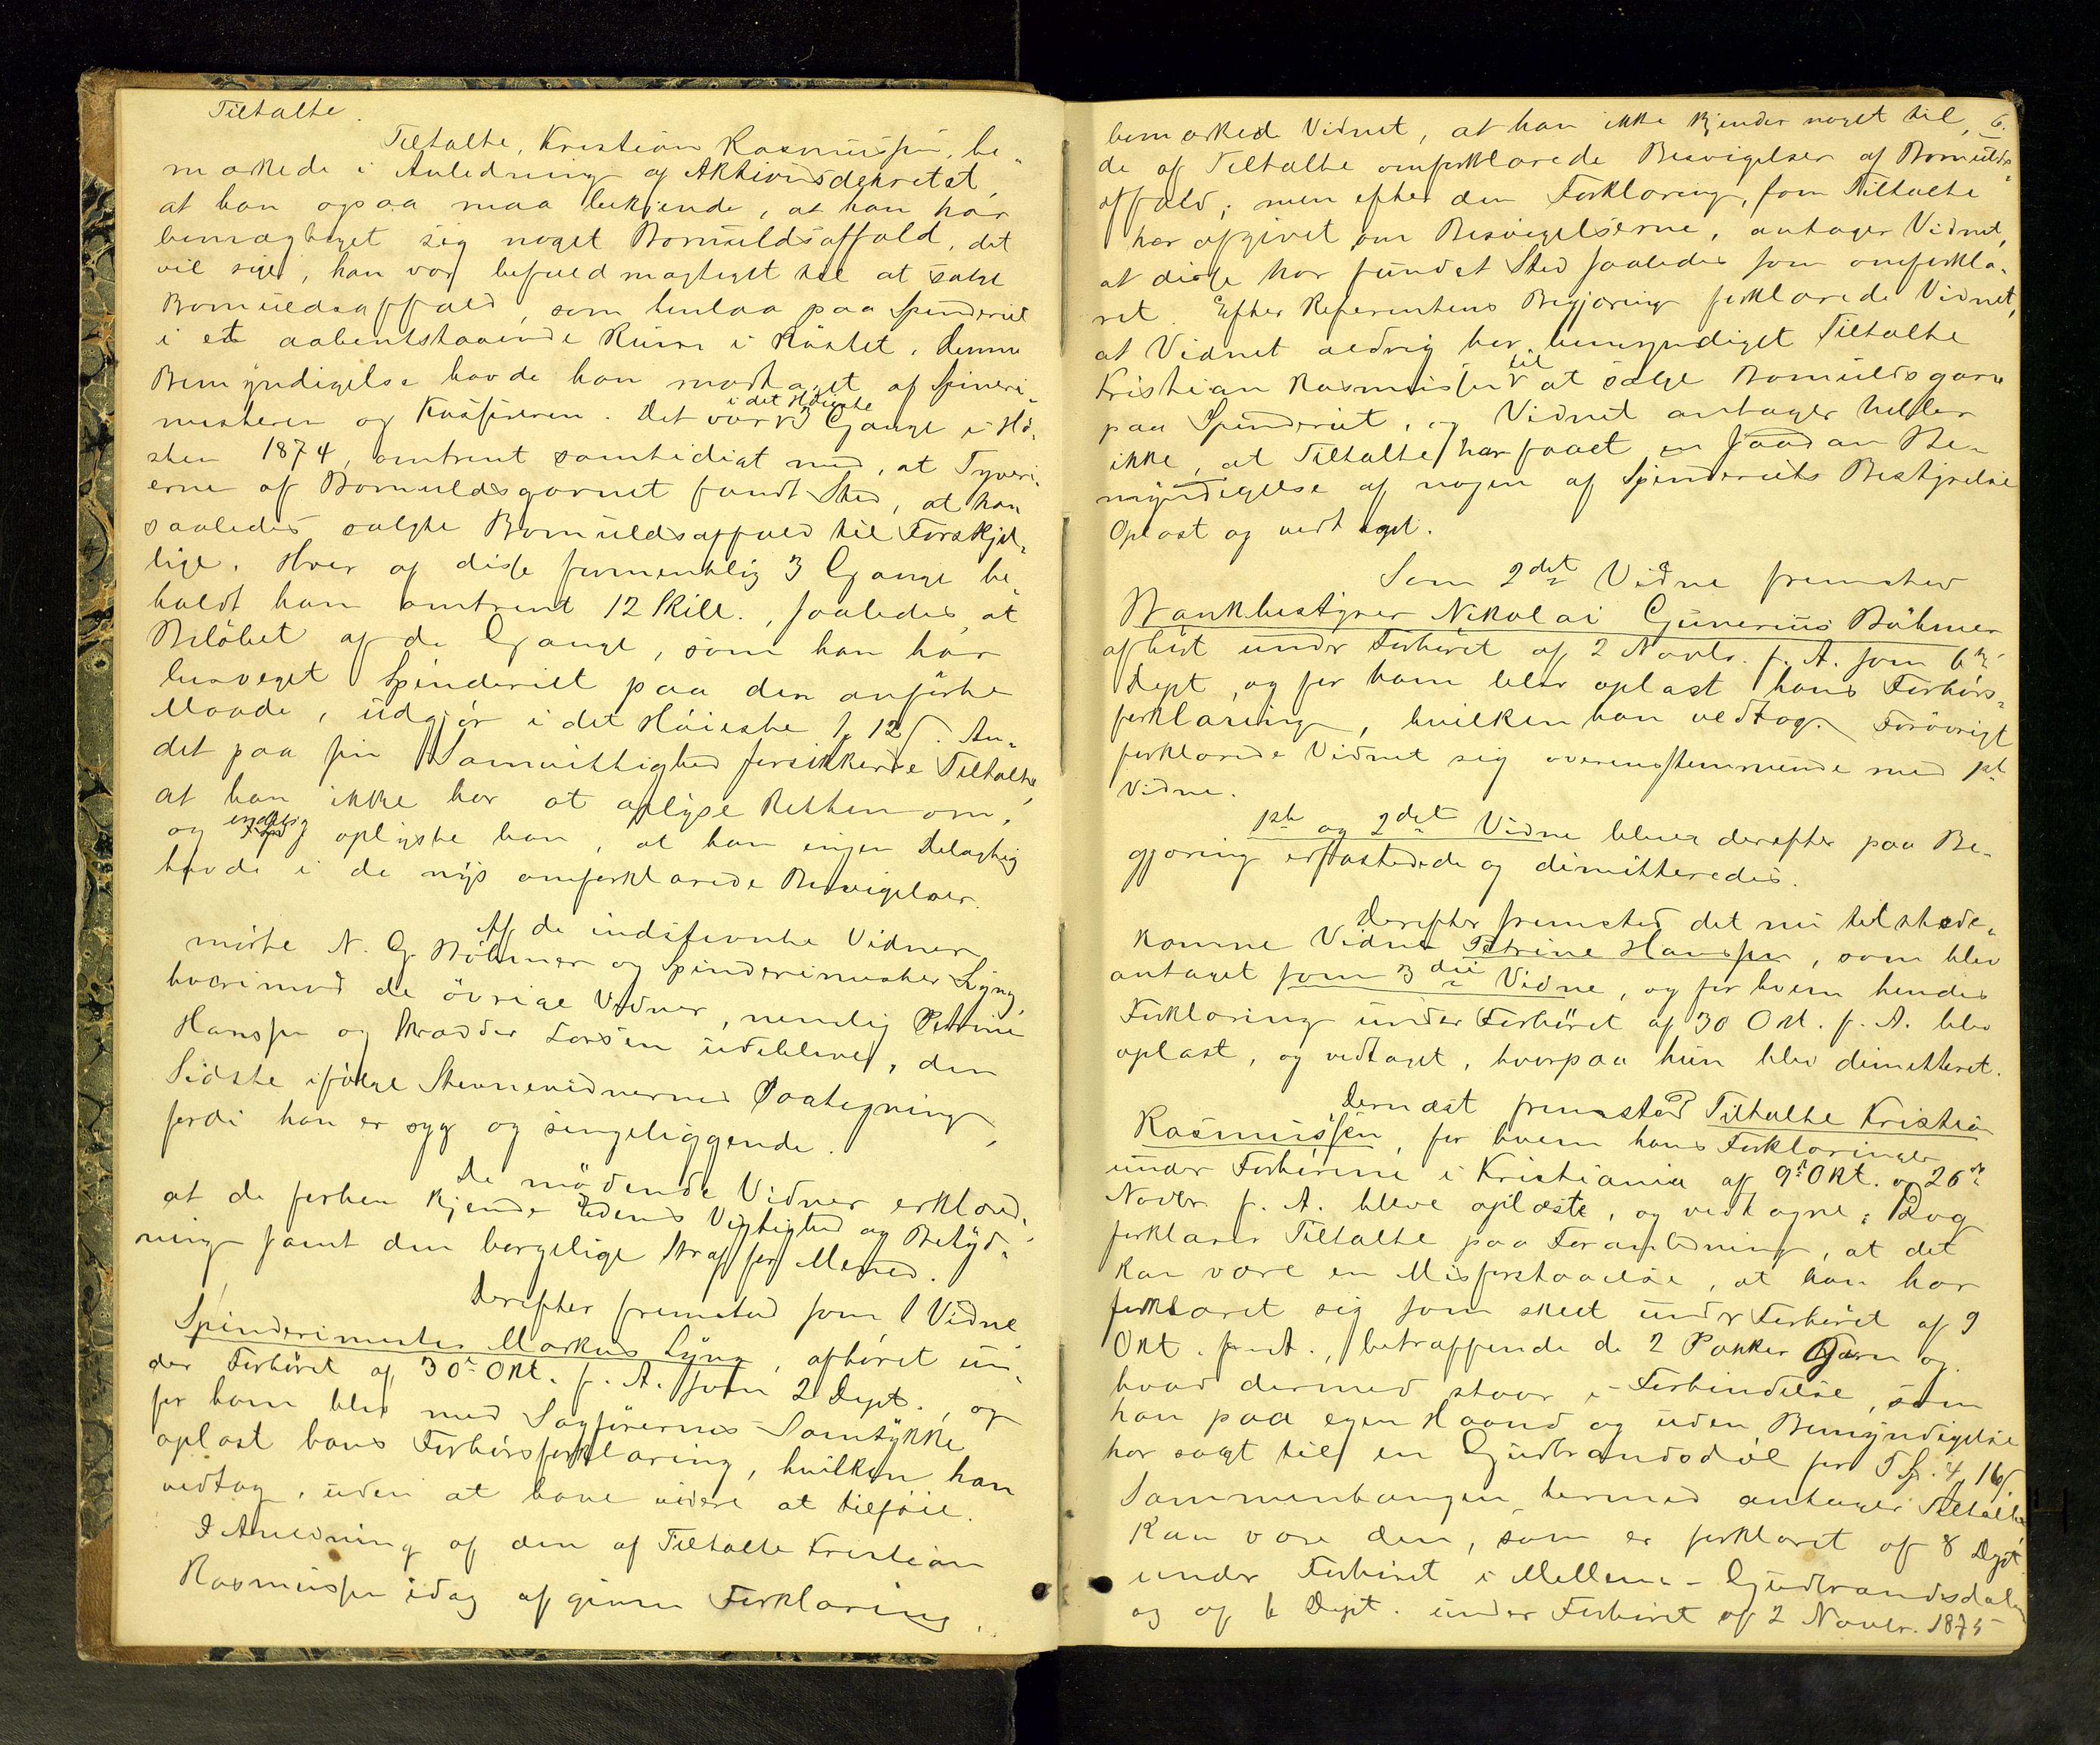 Tiltalte.
Tiltalte, Kristian Rasmussen, be-
mærkede i Anledning af Aktionsdekretet,
at han ogsaa maa bekjende, at han har
bemægtiget sig noget Bomuldsaffald, det
vil sige, han var befuldmægtiget til at sælge
Bomuldsaffald, som henlaa paa Spinderiet
i et aabentstaaende Rum i Huset. Denne
Bemyndigelse havde han modtaget af Spineri-
mesteren og Kasfereren. Det var i det Høieste 3 Gange i Hø-
sten 1874, omtrent samtidigt med, at Tyveri-
erne af Bomuldsgarnet fandt Sted, at han
saaledes solgte Bomuldsaffald til Forskjel-
lige. Hver af disse formentlig 3 Gange be-
holdt han omtrent 12 Skill., saaledes, at
Beløbet af de Gange, som han har
besveget Spinderiet paa den anførte
Maade, udgjør i det Høieste 1 12 s. An-
det paa sin Samvittighed forsikkerde Tiltalte,
at han ikke har at oplyse Retten om,
og endelig oplyste han, at han ingen Delagtig
havde i de nys omforklarede Besvigelser.
Af de indstevnte Vidner
mødte N. G. Böhmer og Spinderimester Lyng,
hvorimod de øvrige Vidner, nemlig Petrine
Hansen og Skrædder Larsen udebleve, den
Sidste ifølge Stevnevidnernes Paategning,
fordi han er syg og sengeliggende.
De mødende Vidner erklæred,
at de forhen kjende Edens Vigtighed og Betyd-
ning samt den borgelige Straf for Mened.
Derefter fremstod som 1 Vidne
Spinderimester Markus Lyng, afhøret un-
der Forhøret af 30 Okt. f. A. som 2 Dept., og
for ham blev med Sagførernes Samtykke
oplæst hans Forhørsforklaring, hvilken han
vedtog, uden at have videre at tilføie.
I Anledning af den af Tiltalte Kristian
Rasmussen idag afgivne Forklaring
bemærkede Vidnet, at han ikke kjender noget til 6.
de af Tiltalte omforklarede Besvigelser af Bomulds-
affald; men efter den Forklaring, som Tiltalte
har afgivet om Besvigelserne, antager Vidnet,
at disse har fundet Sted saaledes som omforkla-
ret. Efter Referentens Begjæring forklarede Vidnet,
at Vidnet aldrig har bemyndiget Tiltalte
Kristian Rasmussen til at sælge Bomuldsgarn
paa Spinderiet, og Vidnet antager heller
ikke, at Tiltalte har faaet en saadan Be-
myndigelse af nogen af Spinderiets Bestyrelse
Oplæst og vedtaget.
Som 2det Vidne fremstod
Bankbestyrer Nikolai Gunerius Böhmer
afhørt under Forhøret af 2 Novbr. f. A. som 6te
Dept, og for ham blev oplæst hans Forhørs-
forklaring, hvilken han vedtog. Forøvrigt
forklarede Vidnet sig overensstemmende med 1ste
Vidne.
1ste og 2det Vidne bleve derefter paa Be-
gjæring edfæstede og dimitteredes.
Derefter fremstod det nu tilstede-
komne Vidne Petrine Hansen, som blev
antaget som 3die Vidne, og for hvem hendes
Forklaring under Forhøret af 30 Okt. f. A. blev
oplæst, og vedtaget, hvorpaa hun blev dimitteret.
Dernæst fremstod Tiltalte Kristian
Rasmussen, for hvem hans Forklaringer
under Forhørene i Kristiania af 9de Okt. og 26de
Novbr. f. A. bleve oplæste, og vedtagne; Dog
forklarer Tiltalte paa Foranledning, at det
kan være en Misforstaaelse, at han har
forklaret sig som skeet under Forhøret af 9
Okt. f. A., betræffende de 2 Pakker Garn og
hvad dermed staar i Forbindelse, som
han paa egen Haand og uden Bemyndigelse
har solgt til en Gudbrandsdøl for 4 16 s
Sammenhængen hermed antager Tiltalte
kan være den, som er forklaret af 8 Dept
under Forhøret i Mellem-Gudbrandsdalen
og af 6 Dept. under Forhøret af 2 Novbr. 1875